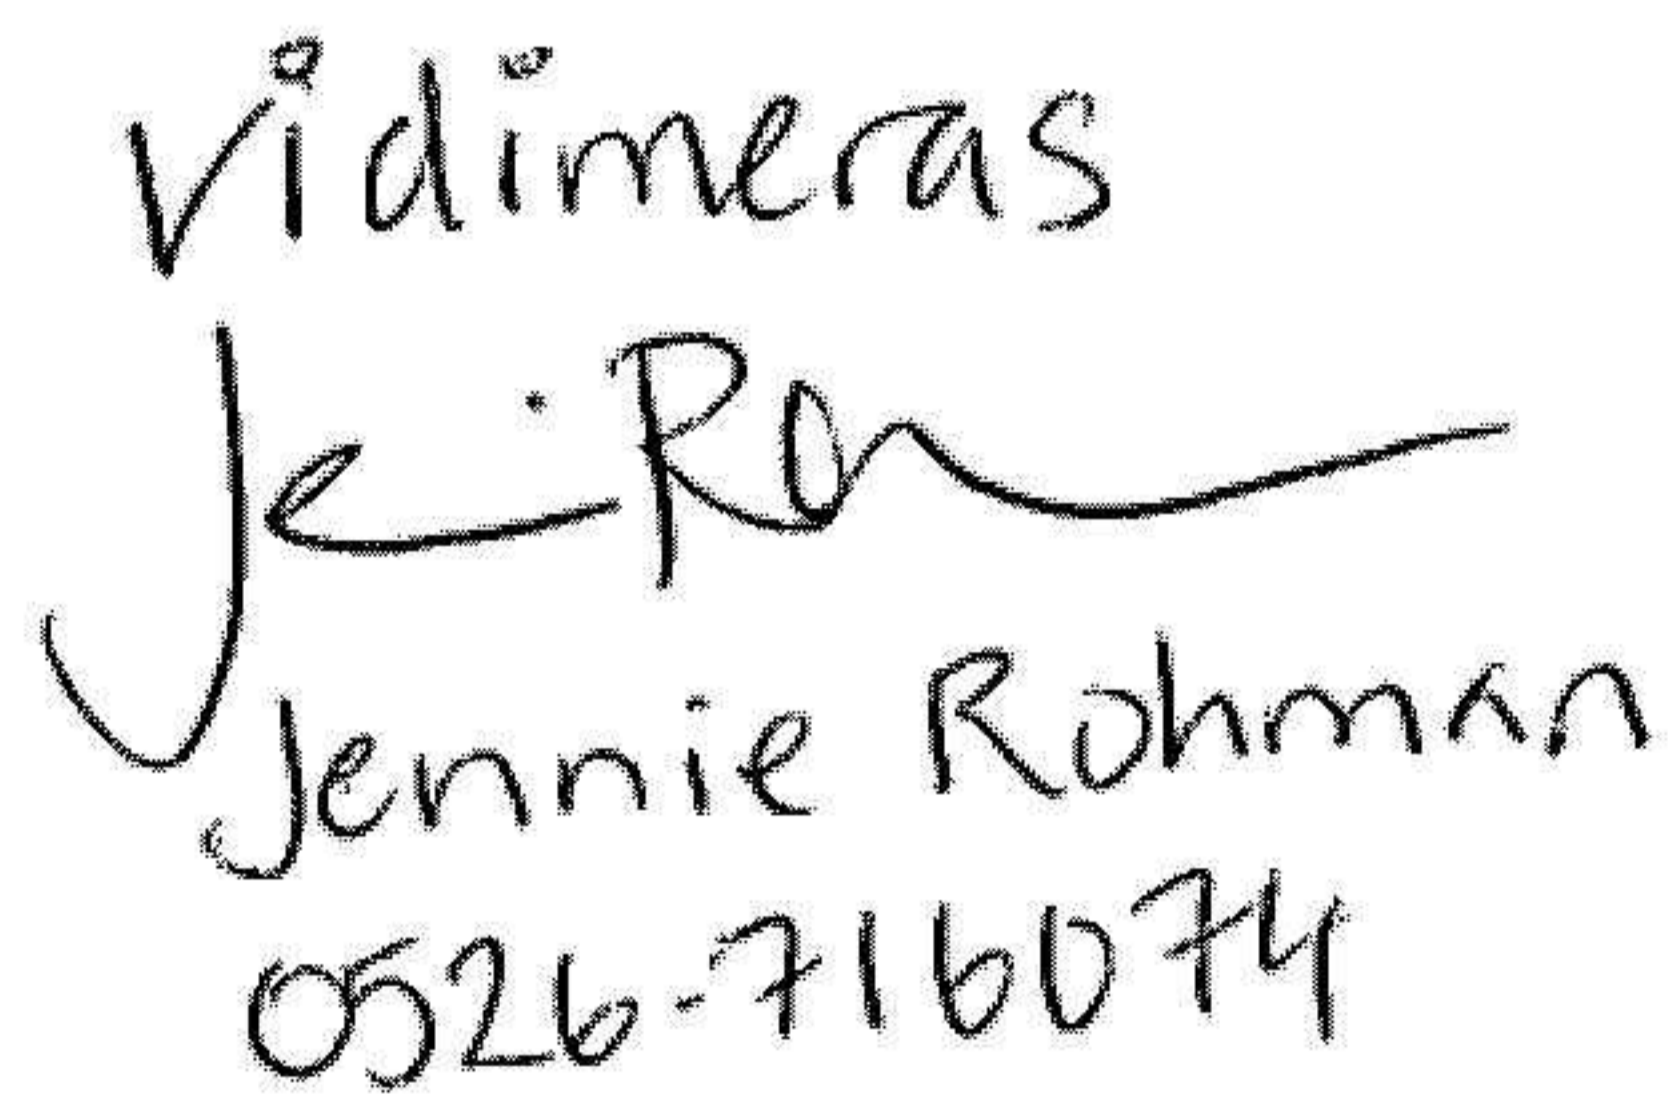 Vidimeras
Jennie Rohman
0526-716074